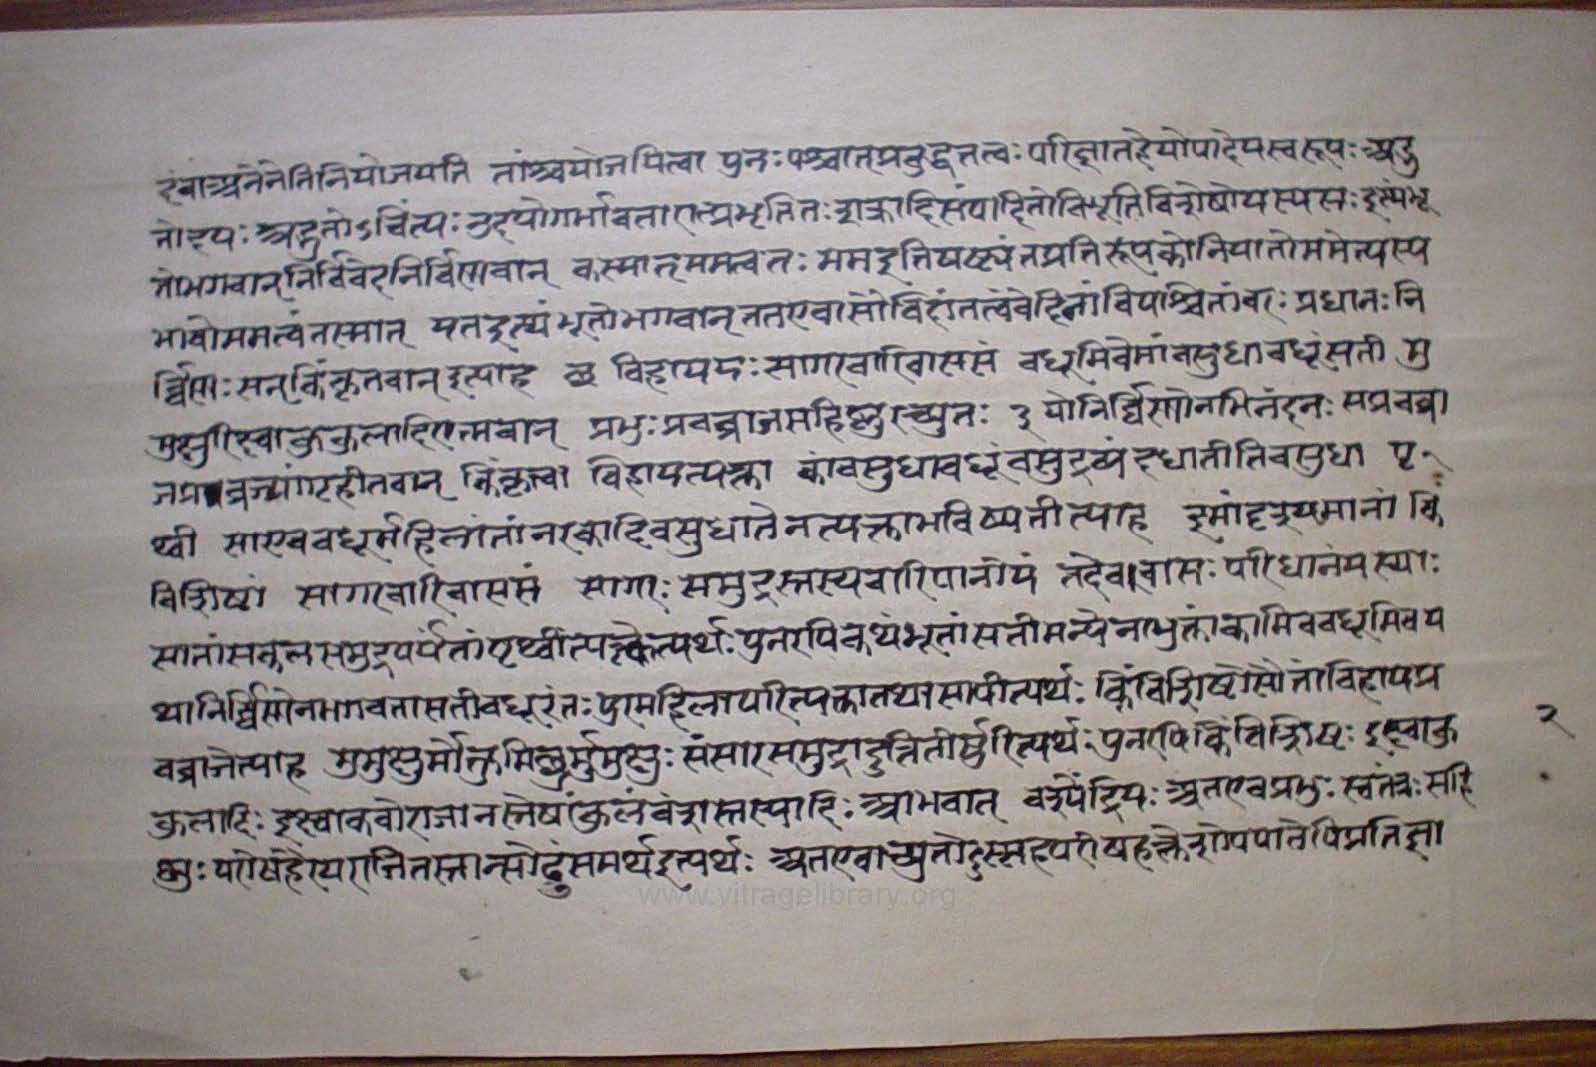 त्वांश्चनेनेतिनियोजयति तांश्चयोजयित्वा पुनः पश्चात्प्रबुद्धतत्वः परिज्ञातहेयोपादेयस्वरूपः अद्भु
तोदयः अद्भुतोऽचिंत्यः उदयोगर्भावतारात्प्रभृतितः शक्रादिसंपादितोविभूतिविशेषोयस्यसः इत्थंभू
तोभगवान् निर्विविदेनिर्विणवान् कस्मात् ममत्वतः ममइतिषष्ठ्यंतप्रतिरूपकोनिपातोममेत्यस्य
भावोममत्वंतस्मात् यतइत्थंभूतोभगवान् ततएवासौविदांतत्ववेदिनांविपश्चितांवरः प्रधानः नि
र्व्विणः सन् किंकृतवान् इत्याह विहाययः सागरवारिवाससं वधूमिवेमांवसुधावधूंसती मु
मुक्षुरिक्ष्वाकुकुलादिरात्मवान् प्रभुः प्रवव्राजसहिष्णुरच्युतः ३ योनिर्व्विणोनाभिनंदनः सप्रवव्रा
जप्रव्रज्यांगृहीतवान् किंकृत्वा विहायत्यक्त्वा कांवसुधावधूंवसुद्रव्यंदधातीतिवसुधा पृ
थ्वी साएववधूर्महिलांतांनरकादिवसुधातेनत्यक्ताभविष्यतीत्याह इमांदृश्यमानां किं
विशिष्टां सागरवारिवाससं सागरः समुद्रस्तस्यवारिपानीयं तदेववासः परिधानंयस्याः
सातांसकलसमुद्रपर्यंतांपृथ्वींत्यक्त्वेत्यर्थः पुनरपिकथंभूतांसतीमन्येनाभुक्तांकामिववधूमिवय
थानिर्व्विणेनभगवतासतीवधूरंतः पुरमहिलापरित्यक्तातथासापीत्यर्थः किंविशिष्टोसौतांविहायप्र
वव्राजेत्याह मुमुक्षुर्मोक्तुमिच्छुर्मुमुक्षुः संसारसमुद्रादुत्तितीर्षुरित्यर्थः पुनरपिकिंविशिष्टः इक्ष्वाकु
कुलादिः इक्ष्वाकवोराजानस्तेषांकुलंवंशस्तस्यादिः आत्मवान् वश्येंद्रियः अतएवप्रभुः स्वतंत्रः सहि
ष्णुः परीषहैरपराजितस्तान्सोढुंसमर्थइत्यर्थः अतएवाच्युतोदुस्सहपरीषहक्लेशोपपातेपिप्रतिज्ञा
२
www.vitragelibrary.org